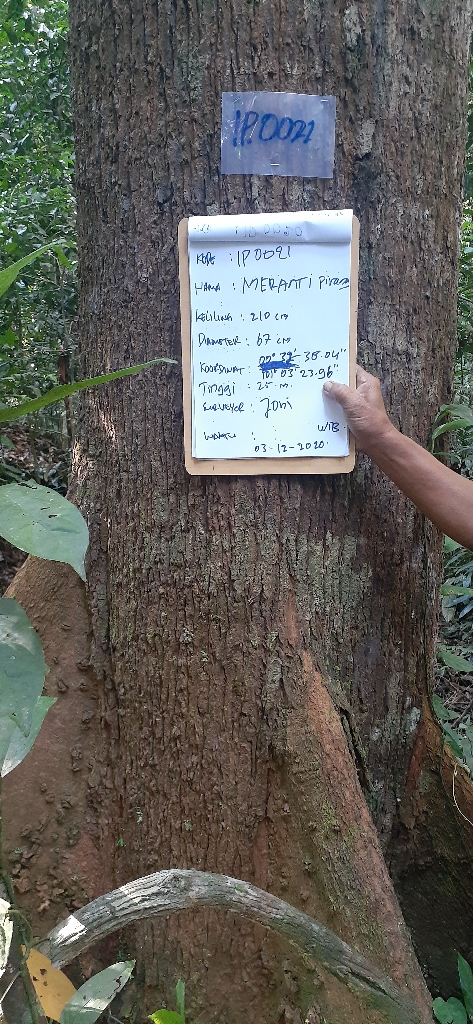 IP.0021
KODE : IP0021
NAMA : MERANTI Pirang
KELILING : 210 cm
DIAMETER : 67 cm
KOORDINAT : 00° 32' 38.04"
101° 03' 23.96"
Tinggi : 25 m.
SURVEYOR : Joni
WAKTU : WIB.
03-12-2020.